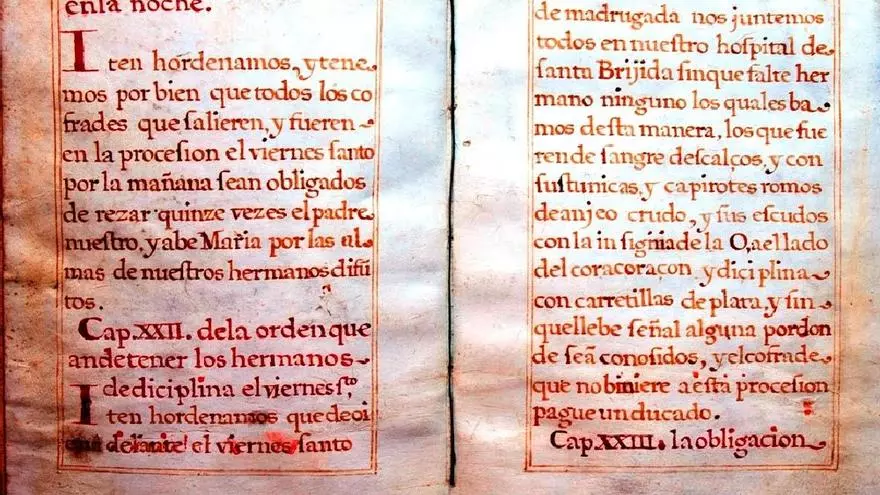 en la noche.
Iten hordenamos, y tene
mos por bien que todos los co
frades que salieren, y fueren
en la procesion el viernes santo
por la mañana sean obligados
de rezar quinze vezes el padre
nuestro, y abe Maria por las al
mas de nuestros hermanos difũ
tos.
Cap. XXII. de la orden que
an de tener los hermanos
de diciplina el viernes s.to
Iten hordenamos que de oi
en delante el viernes santo
de madrugada nos juntemos
todos en nuestro hospital de
santa Brijida sin que falte her
mano ninguno los quales ba
mos desta manera, los que fue
ren de sangre descalços, y con
sus tunicas, y capirotes romos
de anjeo crudo, y sus escudos
con la insignia de la O, a el lado
del coracoraçon y diciplina
con carretillas de plata, y sin
que llebe señal alguna por don
de seã conosidos, y el cofrade
que no biniere a esta procesion
pague un ducado.
Cap. XXIII. la obligacion